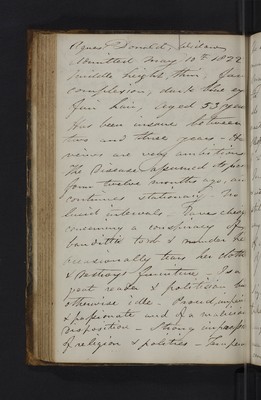 Agnes Donald, Widow
Admitted May 10th 1822
middle height, thin, fair
complexion, dark blue ey
fair hair, aged 53 years
Has been insane between
two and three years - H
views are very ambitious
The Disease assumed its pres
form twelve months ago, an
continues stationary - No
lucid intervals - Raves chiefly
concerning a conspiracy of
banditti to rob & murder he
occasionally tears her clothes
& destroys furniture - Is a
great reader & politician bu
otherwise idle - Proud,
& passionate and of a malicious
disposition - Strong impress
of religion & politics - Temper